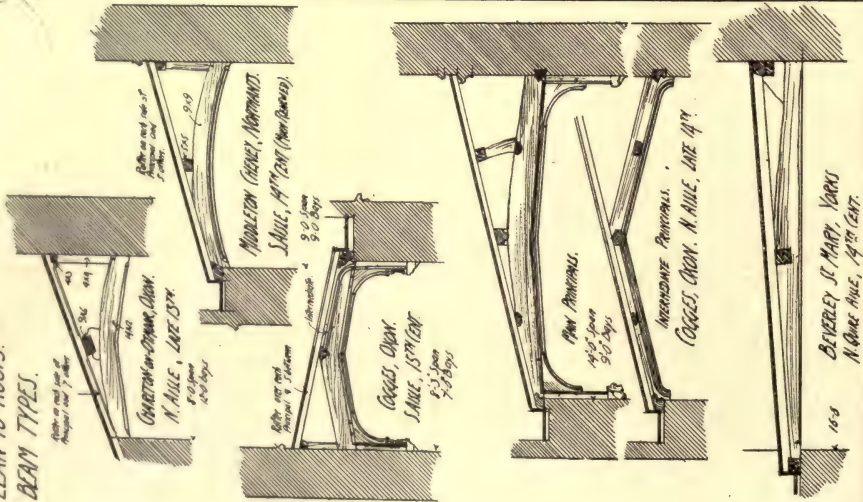 LEAN-TO ROOFS.
BEAM TYPES.
Rafter on each side of
Principal and 7 others
CHARLTON-ON-OTMOOR, OXON.
N. AISLE, LATE 13TH.
Rafter on each side of
Principal and
5 others
9x9
MIDDLETON CHENEY, NORTHANTS.
S. AISLE, 14TH CENT. (MUCH RENEWED).
9-0 Span
9-0 Bays
Rafter over each
Principal & 5 between
Intermediate
COGGES, OXON.
S. AISLE, 13TH CENT.
8-3 Span
7-0 Bays
MAIN PRINCIPALS.
9-0 Bays
INTERMEDIATE PRINCIPALS.
COGGES, OXON. N. AISLE, LATE 14TH
16-3
BEVERLEY ST MARY, YORKS
N. QUIRE AISLE, 14TH CENT.